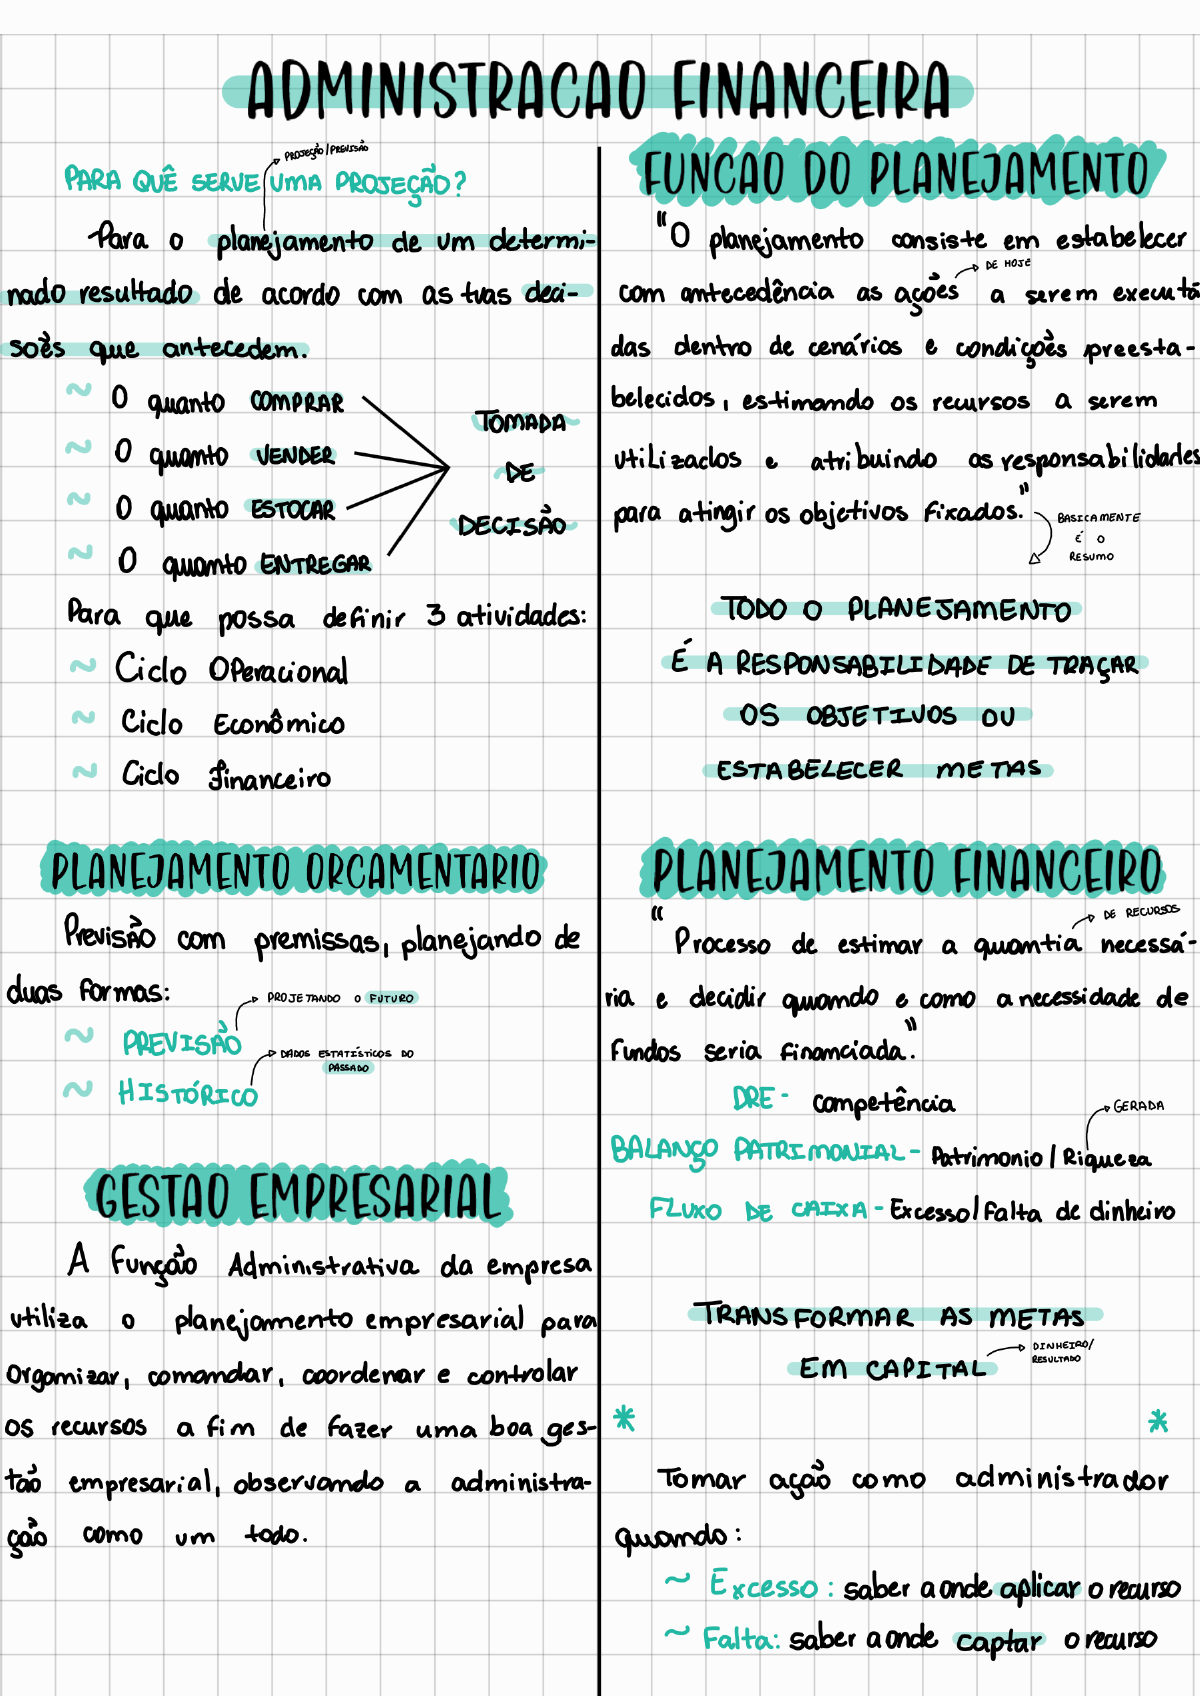 ADMINISTRACAO FINANCEIRA
PROJEÇÃO/PREVISÃO
PARA QUÊ SERVE UMA PROJEÇÃO?
Para o planejamento de um determi-
nado resultado de acordo com as tuas deci-
soẽs que antecedem.
~ O quanto COMPRAR
~ O quanto VENDER
~ O quanto ESTOCAR
~ O quanto ENTREGAR
TOMADA
DE
DECISÃO
Para que possa definir 3 atividades:
~ Ciclo Operacional
~ Ciclo Econômico
~ Ciclo Financeiro
PLANEJAMENTO ORCAMENTARIO
Previsão com premissas, planejando de
duas formas:
PROJETANDO O FUTURO
~ PREVISÃO
DADOS ESTATÍSTICOS DO
PASSADO
~ HISTÓRICO
GESTAO EMPRESARIAL
A Função Administrativa da empresa
utiliza o planejamento empresarial para
organizar, comandar, coordenar e controlar
os recursos a fim de fazer uma boa ges-
tão empresarial, observando a administra-
ção como um todo.
FUNCAO DO PLANEJAMENTO
"O planejamento consiste em estabelecer
DE HOJE
com antecedência as açoẽs a serem executa
das dentro de cenários e condiçoẽs preesta-
belecidos, estimando os recursos a serem
utilizados e atribuindo as responsabilidades
para atingir os objetivos fixados."
BASICAMENTE
É O
RESUMO
TODO O PLANEJAMENTO
É A RESPONSABILIDADE DE TRAÇAR
OS OBJETIVOS OU
ESTABELECER METAS
PLANEJAMENTO FINANCEIRO
DE RECURSOS
"Processo de estimar a quantia necessá-
ria e decidir quando e como a necessidade de
fundos seria financiada."
DRE - competência
GERADA
BALANÇO PATRIMONIAL - Patrimonio / Riqueza
FLUXO DE CAIXA - Excesso/falta de dinheiro
TRANSFORMAR AS METAS
EM CAPITAL
DINHEIRO/
RESULTADO
* *
Tomar ação como administrador
quando:
~ Excesso: saber aonde aplicar o recurso
~ Falta: saber aonde captar o recurso